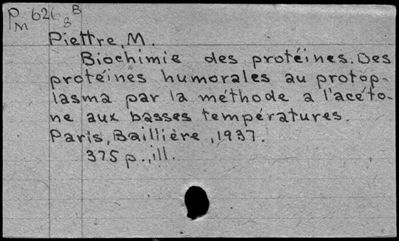 P 626 B
M 8
Piettre, M.
Biochimie des protéines. Des
protéines humorales au protop-
lasma par la méthode a l'acéto-
ne aux basses températures.
Paris, Baillière, 1937.
375 p., ill.